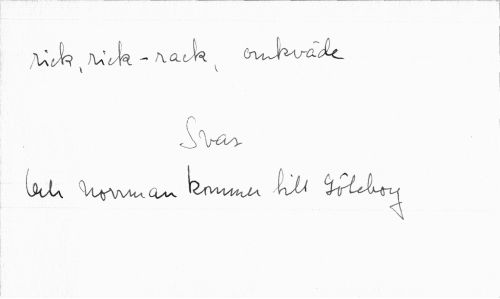 rick, rick-rack, omkväde
Svar
Och Norrman kommer till Göteborg